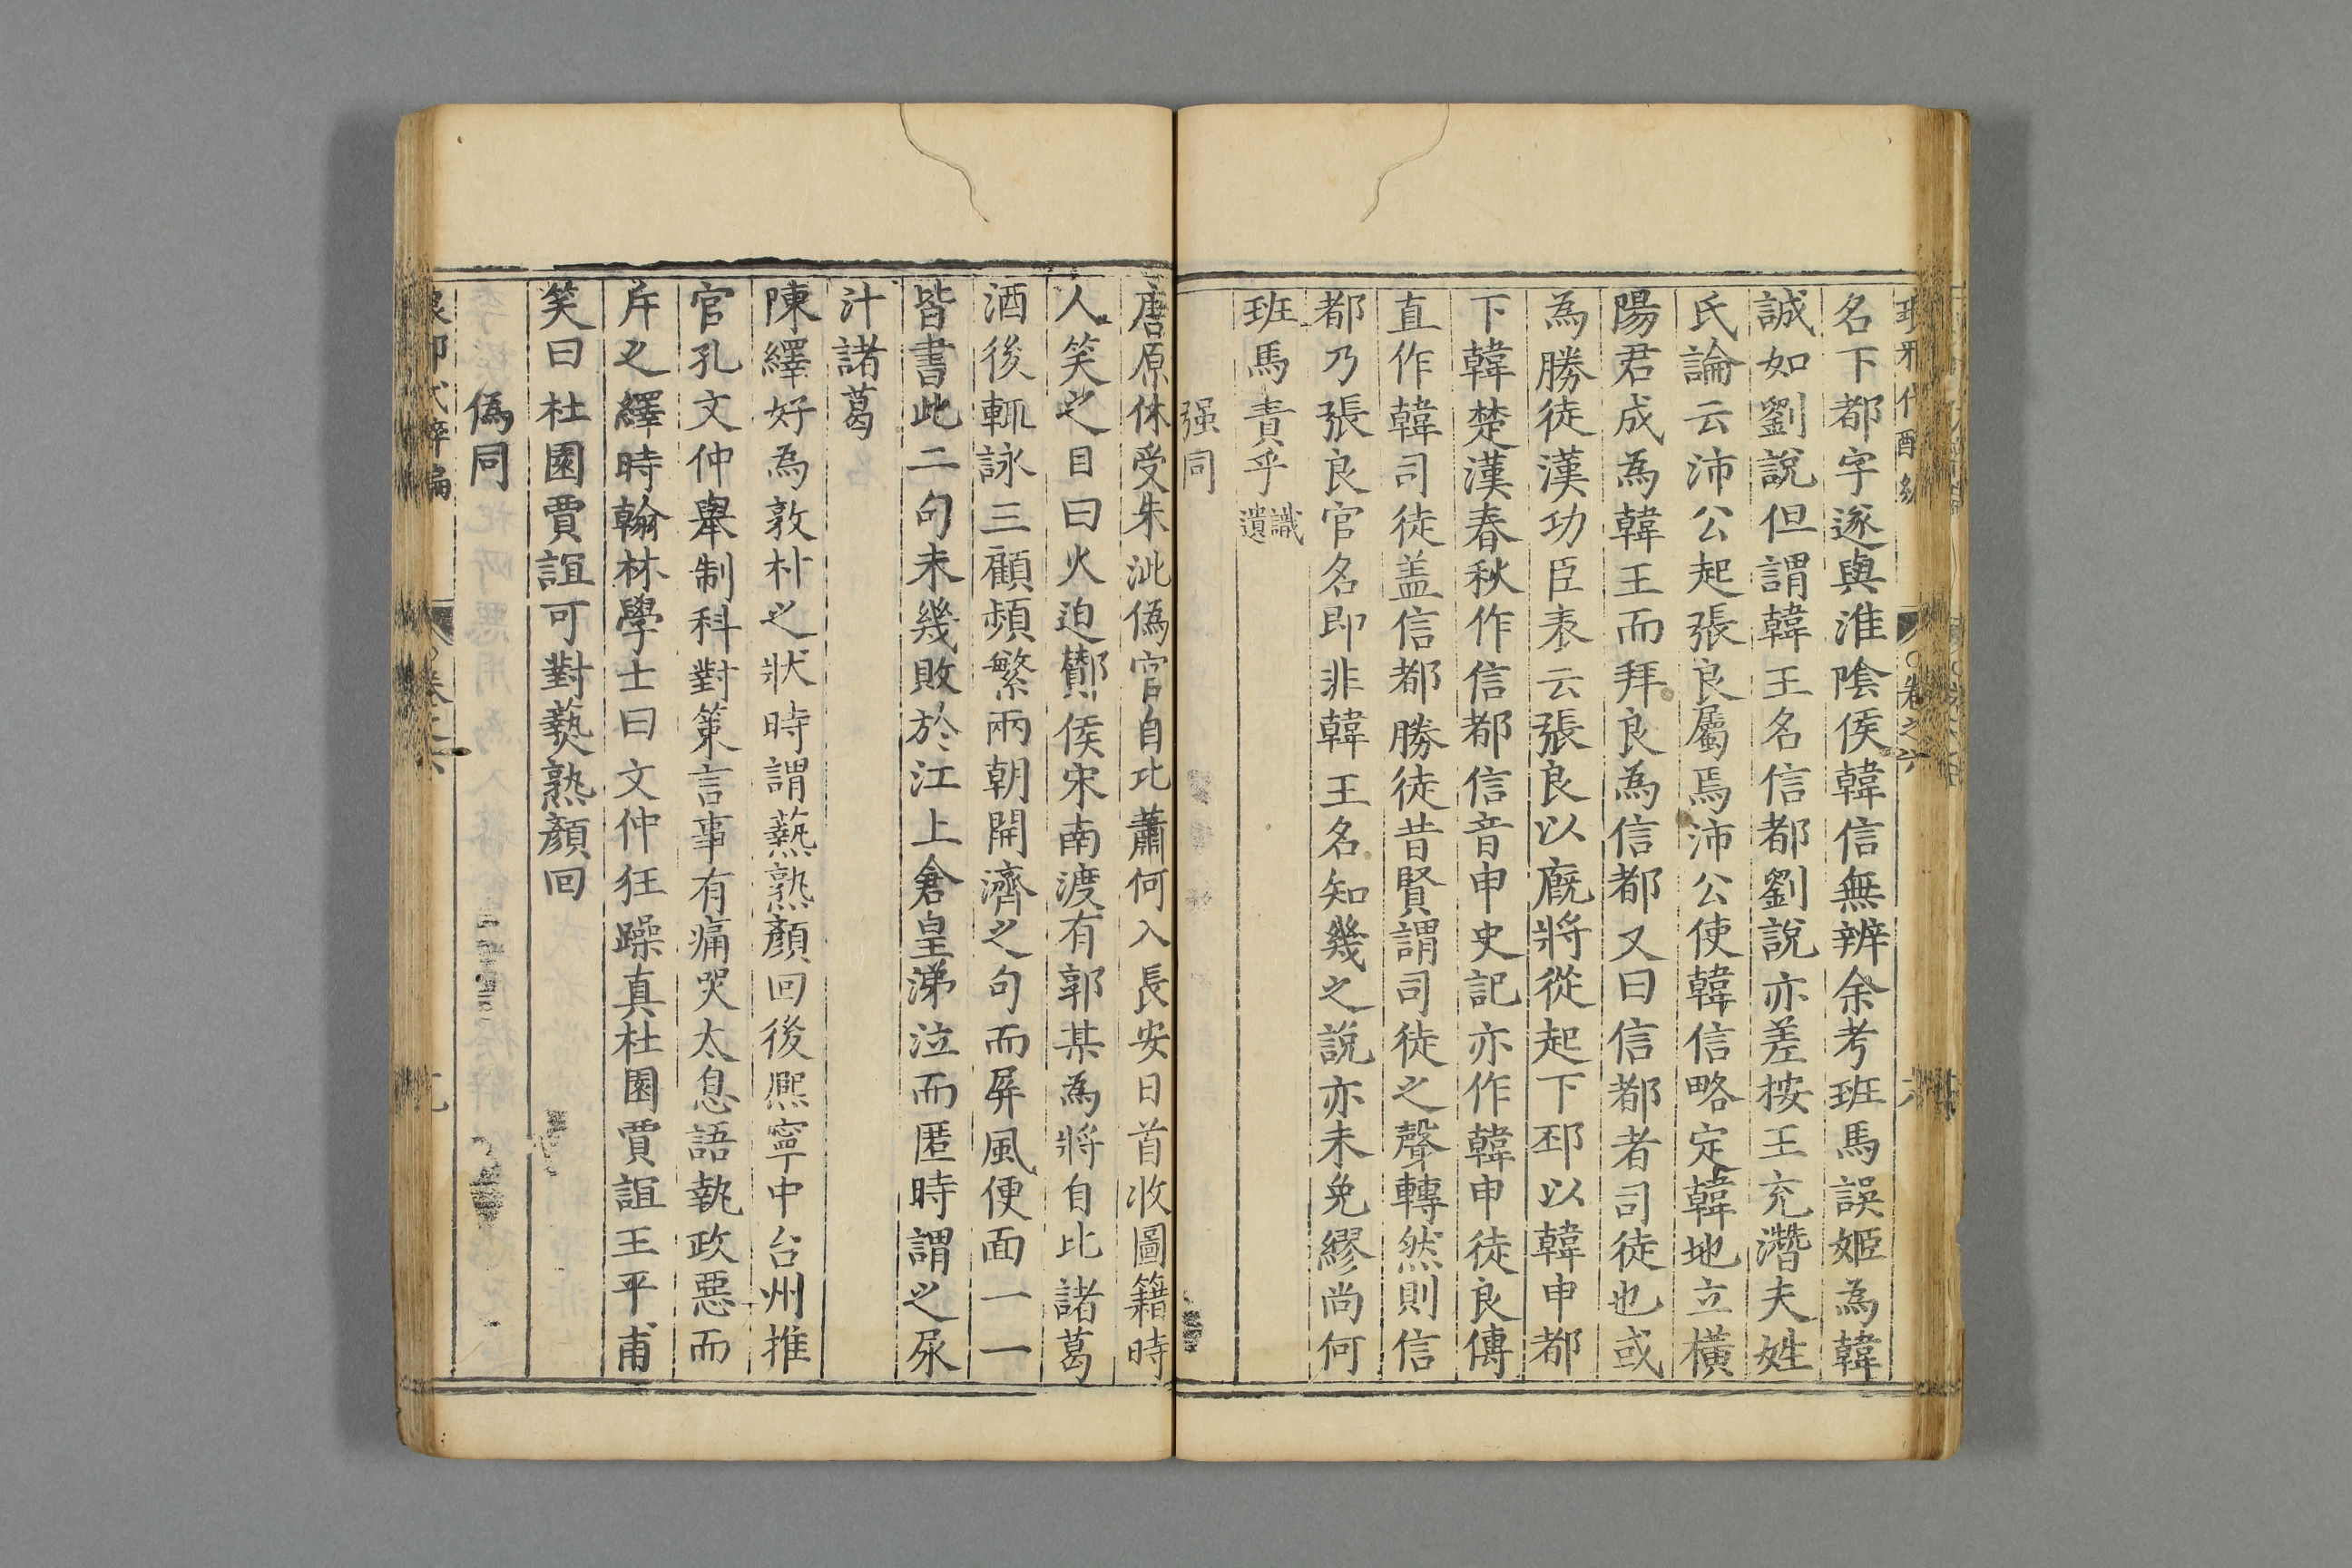 名下都字遂與淮陰侯韓信無辨余考班馬誤姬為韓
誠如劉說但謂韓王名信都劉說亦差按王充潛夫姓
氏論云沛公起張良屬焉沛公使韓信略定韓地立橫
陽君成為韓王而拜良為信都又曰信都者司徒也或
為勝徒漢功臣表云張良以廐將從起下邳以韓申都
下韓楚漢春秋作信都信音申史記亦作韓申徒良傳
直作韓司徒盖信都勝徒昔賢謂司徒之聲轉然則信
都乃張良官名即非韓王名知幾之說亦未免繆尚何
班馬責乎識遺
强同
唐原休受朱泚偽官自比蕭何入長安日首收圖籍時
人笑之目曰火迫酇侯宋南渡有郭某為將自比諸葛
酒後輒詠三顧頻繁兩朝開濟之句而屏風便面一一
皆書此二句未幾敗於江上倉皇涕泣而匿時謂之尿
汁諸葛
陳繹好為敦朴之狀時謂爇熟顏回後熈寧中台州推
官孔文仲舉制科對策言事有痛哭太息語執政惡而
斥之繹時翰林學士曰文仲狂躁真杜園賈誼王平甫
笑曰杜園賈誼可對爇熟顏回
偽同
卷之六